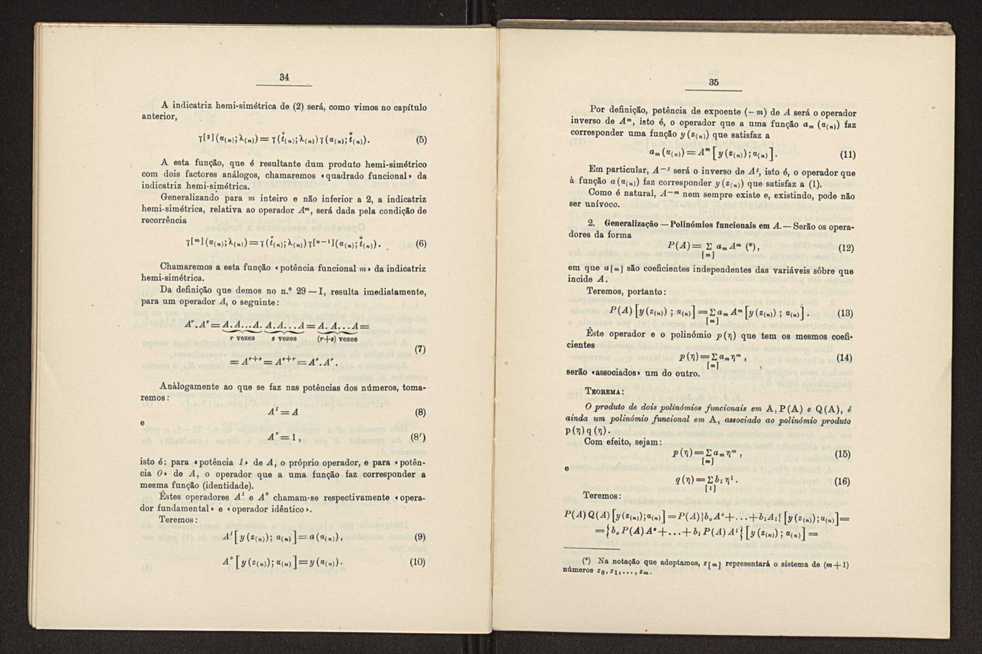 34
A indicatriz hemi-simétrica de (2) será, como vimos no capítulo
anterior,
γ[2](α(n);λ(n))=γ(t̊(n);λ(n))γ(α(n);t̊(n)). (5)
A esta função, que é resultante dum produto hemi-simétrico
com dois factores análogos, chamaremos «quadrado funcional» da
indicatriz hemi-simétrica.
Generalizando para m inteiro e não inferior a 2, a indicatriz
hemi-simétrica, relativa ao operador Aᵐ, será dada pela condição de
recorrência
γ[m](α(n);λ(n))=γ(t̊(n);λ(n))γ[m−1](α(n);t̊(n)). (6)
Chamaremos a esta função «potência funcional m» da indicatriz
hemi-simétrica.
Da definição que demos no n.º 29 — I, resulta imediatamente,
para um operador A, o seguinte:
Aʳ.Aˢ=A.A...A.A.A...A=A.A...A=
r vezes s vezes (r+s) vezes
(7)
=Aʳ⁺ˢ=Aˢ⁺ʳ=Aˢ.Aʳ.
Anàlogamente ao que se faz nas potências dos números, toma-
remos:
A¹=A (8)
e
A°=1, (8′)
isto é: para «potência 1» de A, o próprio operador, e para «potên-
cia 0» de A, o operador que a uma função faz corresponder a
mesma função (identidade).
Êstes operadores A¹ e A° chamam-se respectivamente «opera-
dor fundamental» e «operador idêntico».
Teremos:
A¹[y(z(n)); α(n)]=a(α(n)), (9)
A°[y(z(n)); α(n)]=y(α(n)). (10)
35
Por definição, potência de expoente (−m) de A será o operador
inverso de Aᵐ, isto é, o operador que a uma função aₘ(α(n)) faz
corresponder uma função y(z(n)) que satisfaz a
aₘ(α(n))=Aᵐ[y(z(n)); α(n)]. (11)
Em particular, A⁻¹ será o inverso de A¹, isto é, o operador que
à função a(α(n)) faz corresponder y(z(n)) que satisfaz a (1).
Como é natural, A⁻ᵐ nem sempre existe e, existindo, pode não
ser unívoco.
2. Generalização — Polinómios funcionais em A. — Serão os opera-
dores da forma
P(A)=Σ aₘAᵐ (*), (12)
[m]
em que a[m] são coeficientes independentes das variáveis sôbre que
incide A.
Teremos, portanto:
P(A)[y(z(n)); α(n)]=Σ aₘAᵐ[y(z(n)); α(n)]. (13)
[m]
Êste operador e o polinómio p(η) que tem os mesmos coefi-
cientes
p(η)=Σ aₘηᵐ, (14)
[m]
serão «associados» um do outro.
TEOREMA:
O produto de dois polinómios funcionais em A, P(A) e Q(A), é
ainda um polinómio funcional em A, associado ao polinómio produto
p(η)q(η).
Com efeito, sejam:
p(η)=Σ aₘηᵐ, (15)
[m]
e
q(η)=Σ bᵢηⁱ. (16)
[i]
Teremos:
P(A)Q(A)[y(z(n));α(n)]=P(A){b₀A°+...+bᵢAᵢ}[y(z(n));α(n)]=
={b₀P(A)A°+...+bᵢP(A)Aⁱ}[y(z(n)); α(n)]=
(*) Na notação que adoptamos, z[m] representará o sistema de (m+1)
números z₀, z₁, ..., zₘ.